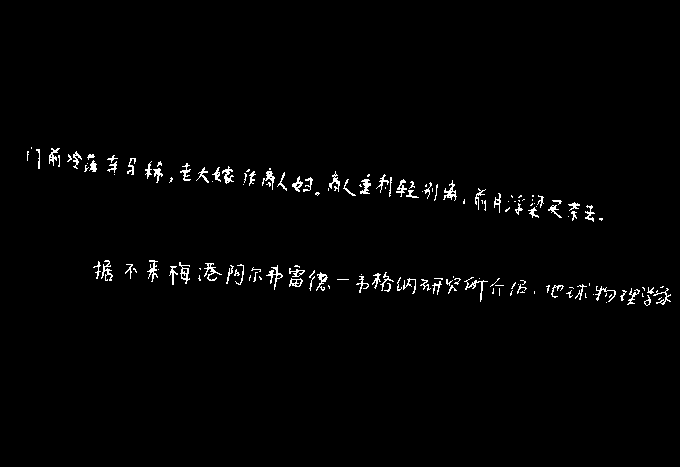 门前冷落车马稀,老大嫁作商人妇。商人重利轻别离,前月浮梁买茶去。
据不来梅港阿尔弗雷德—韦格纳研究所介绍,地球物理学家